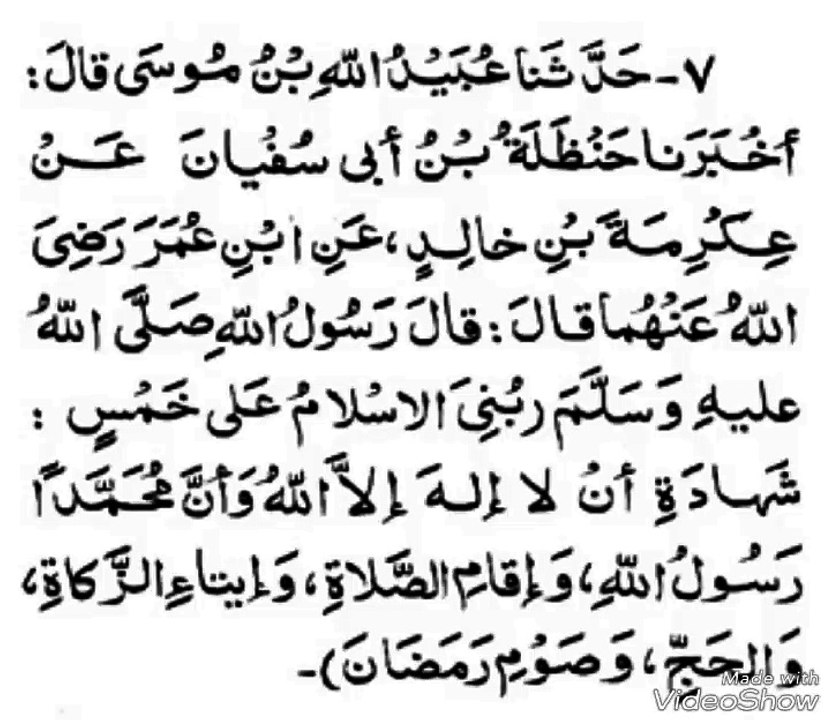 ٧- حَدَّثَنا عُبَيْدُ اللّٰهِ بْنُ مُوسَى قالَ:
أخْبَرَنا حَنْظَلَةُ بْنُ أبى سفْيانَ عَنْ
عِكْرِمَةَ بْنِ خالِدٍ، عَنِ ابْنِ عُمَرَ رَضِىَ
اللّٰهُ عَنْهُما قالَ: قالَ رَسُولُ اللّٰهِ صَلَّى اللّٰهُ
عليهِ وَسَلَّمَ (بُنِىَ الاسْلامُ عَلى خَمْسٍ:
شَهادَةِ أنْ لا إلهَ إلاَّ اللّٰهُ وَأنَّ مُحَمَّدًا
رَسُولُ اللّٰهِ، وَإقامِ الصَّلاةِ، وَإيتاءِ الزَّكاةِ،
وَالحَجِّ، وَصَوْمِ رَمَضَانَ)-
Made with
VideoShow